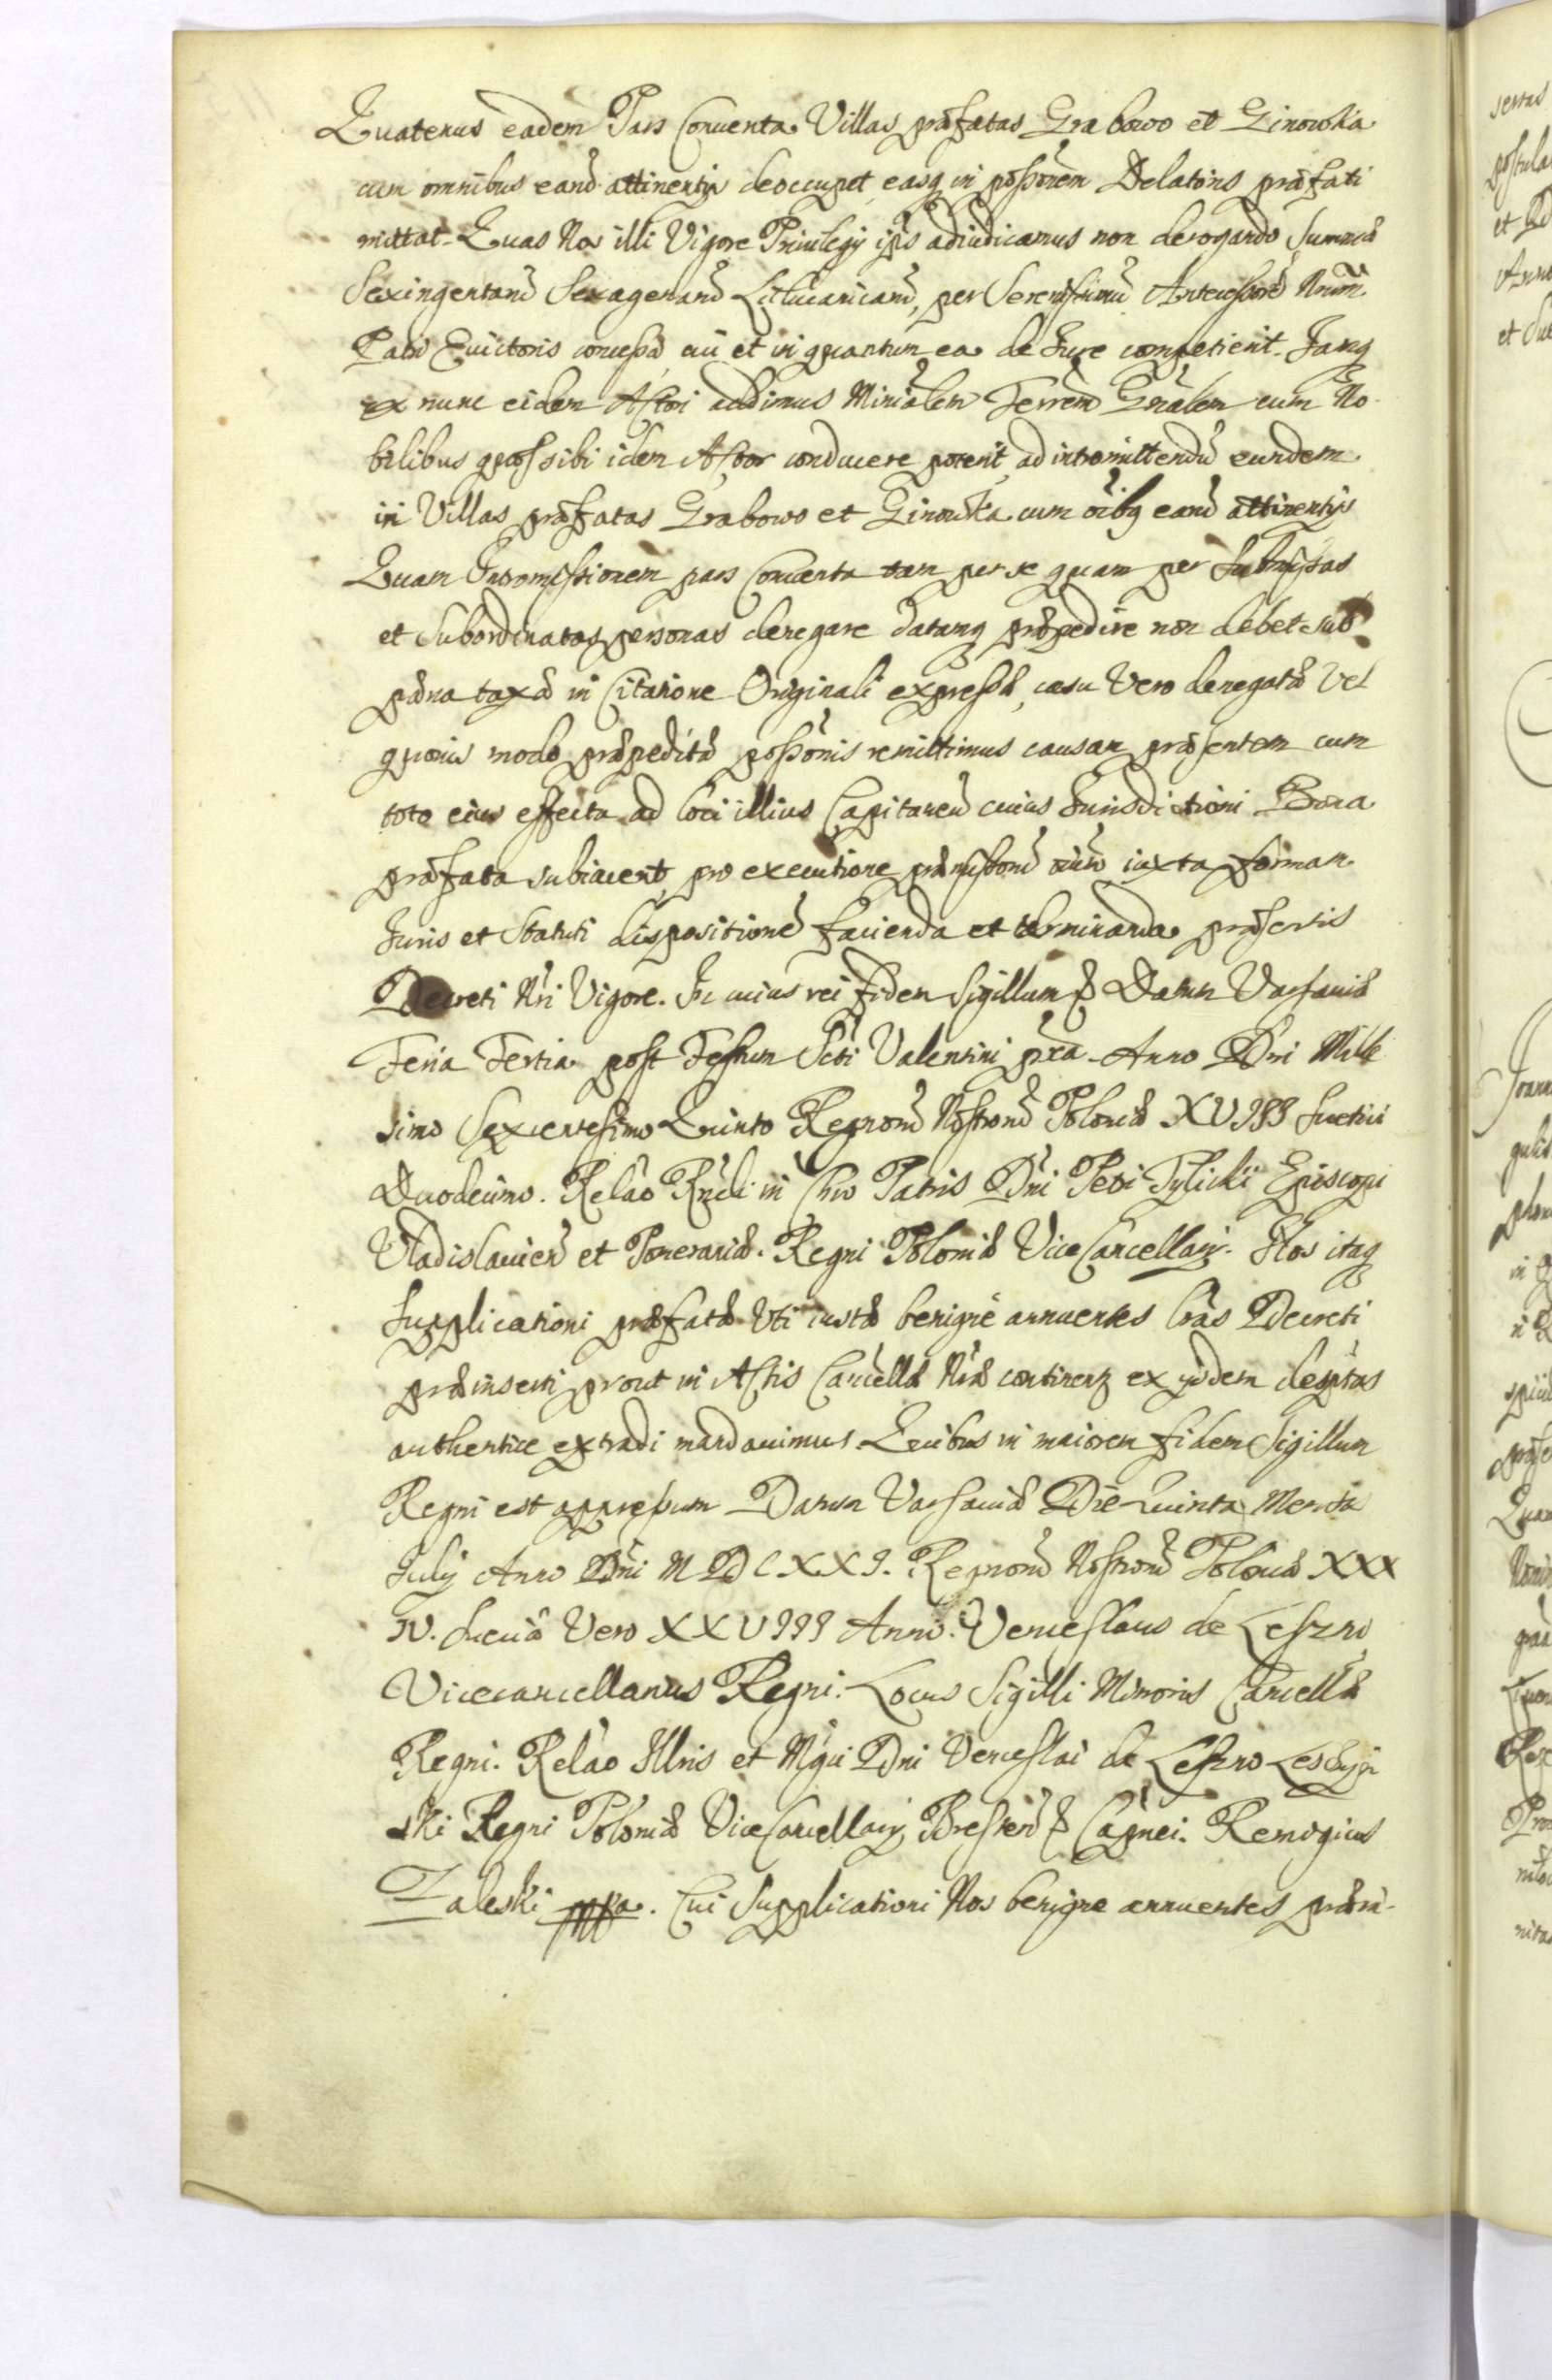 Quatenus eadem Pars Conventa Villas præfatas Grabowo et Ginowka
cum omnibus earũ attinentijs deoccupet, easq in possõrem Delatoris præfati
mittat. Quas Nos illi Vigore Priuilegij ipsi adiudicamus non derogando Summæ
Sexingentarũ Sexagenarũ Lithuanicarũ, per Serenissimũ Antecessorẽ Nrũm
Patri Euictoris concessæ cui et in quantum ea de Jure competierit. Jamq
ex nunc eidem Actori addimus Miniãlem Terrem̃ Gnãlem cum No-
bilibus quos sibi idem Actor conducere poterit, ad intromittendũ eundem
in Villas præfatas Grabowo et Ginowka cum oĩbq earũ attinentijs
Quam Intromissionem pars Conventa tam per se quam per Submissas
et Subordinatas personas denegare datamq præpedire non debet sub
pæna taxæ in Citatione Originali expressæ, casu Vero denegatæ Vel
quouis modo præpeditæ possõnis remittimus causam præsentem cum
toto eius effectu ad loci illius Capitaneũ cuius Jurisdictioni Bona
præfata subiacent, pro executione præmissorũ oĩũm iuxta formam
Juris et Statuti dispositionẽ facienda et terminanda præsentis
Decreti Nrĩ Vigore. In cuius rei fidem Sigillum & Datum Varsauiæ
Feria Tertia post Festum Scti Valentini pxã. Anno Dni Mille
simo Sexcentesimo Quinto Regnorũ Nostrorũ Poloniæ XVIII Suetiæ
Duodecimo. Relão Rndi in Chro Patris Dni Petri Tylicki Episcopi
Vladislauien̄ et Pomeraniæ. Regni Poloniæ ViceCancellarij. Nos itaq
Supplicationi præfatæ Vti iustæ benigne annuentes lras Decreti
præinserti prout in Actis Cancellæ Nræ continenr ex ijsdem desptas
authentice extradi mandauimus. Quibus in maiorem fidem Sigillum
Regni est appressum Datum Varsauiæ Die Quinta Mensis
Julij Anno Dni MDCXXI. Regnorũ Nostrorũ Poloniæ XXX
IV. Sueciæ Vero XXVIII Anno. Venceslaus de Leszno
Vicecancellarius Regni. Locus Sigilli Minoris Cancellæ
Regni. Relão Illris et Mgci Dni Venceslai de Leszno Leszczyn
ski Regni Poloniæ ViceCancellarij, Bresten̄ & Capnei. Remigius
Zaleski mppa. Cui Supplicationi Nos benigne annuentes præin-